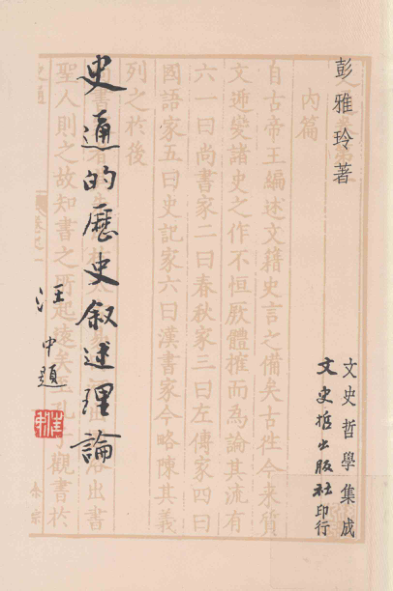 彭雅玲著
史通的歷史叙述理論
汪中題
文史哲學集成
文史哲出版社印行
內篇
自古帝王編述文籍史言之備矣古往今來質
文遞變諸史之作不恒厥體搉而為論其流有
六一曰尚書家二曰春秋家三曰左傳家四曰
國語家五曰史記家六曰漢書家今略陳其義
列之於後
出書
聖人則之故知書之所起遠矣至孔觀書於